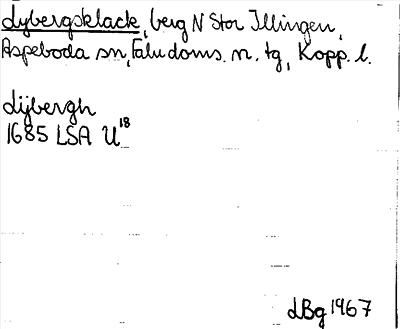 Lybergsklack, berg N Stor Illingen,
Aspeboda sn, Falu doms. n. tg, Kopp. l.
Lijbergh
1685 LSA U18
LBg 1967